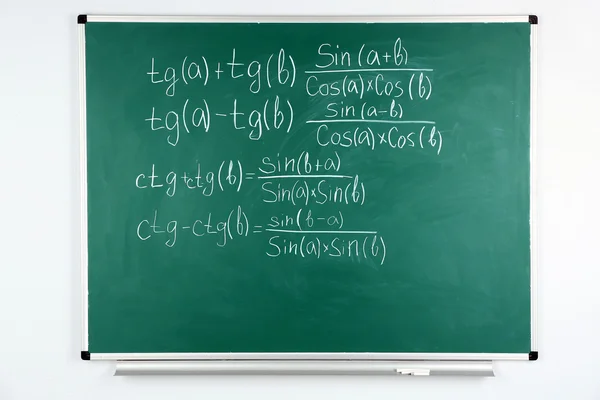 tg(a)+tg(b) Sin(a+b)/Cos(a)×Cos(b)
tg(a)-tg(b) Sin(a-b)/Cos(a)×Cos(b)
ctg+ctg(b)=Sin(b+a)/Sin(a)×Sin(b)
ctg-ctg(b)=sin(b-a)/Sin(a)×Sin(b)